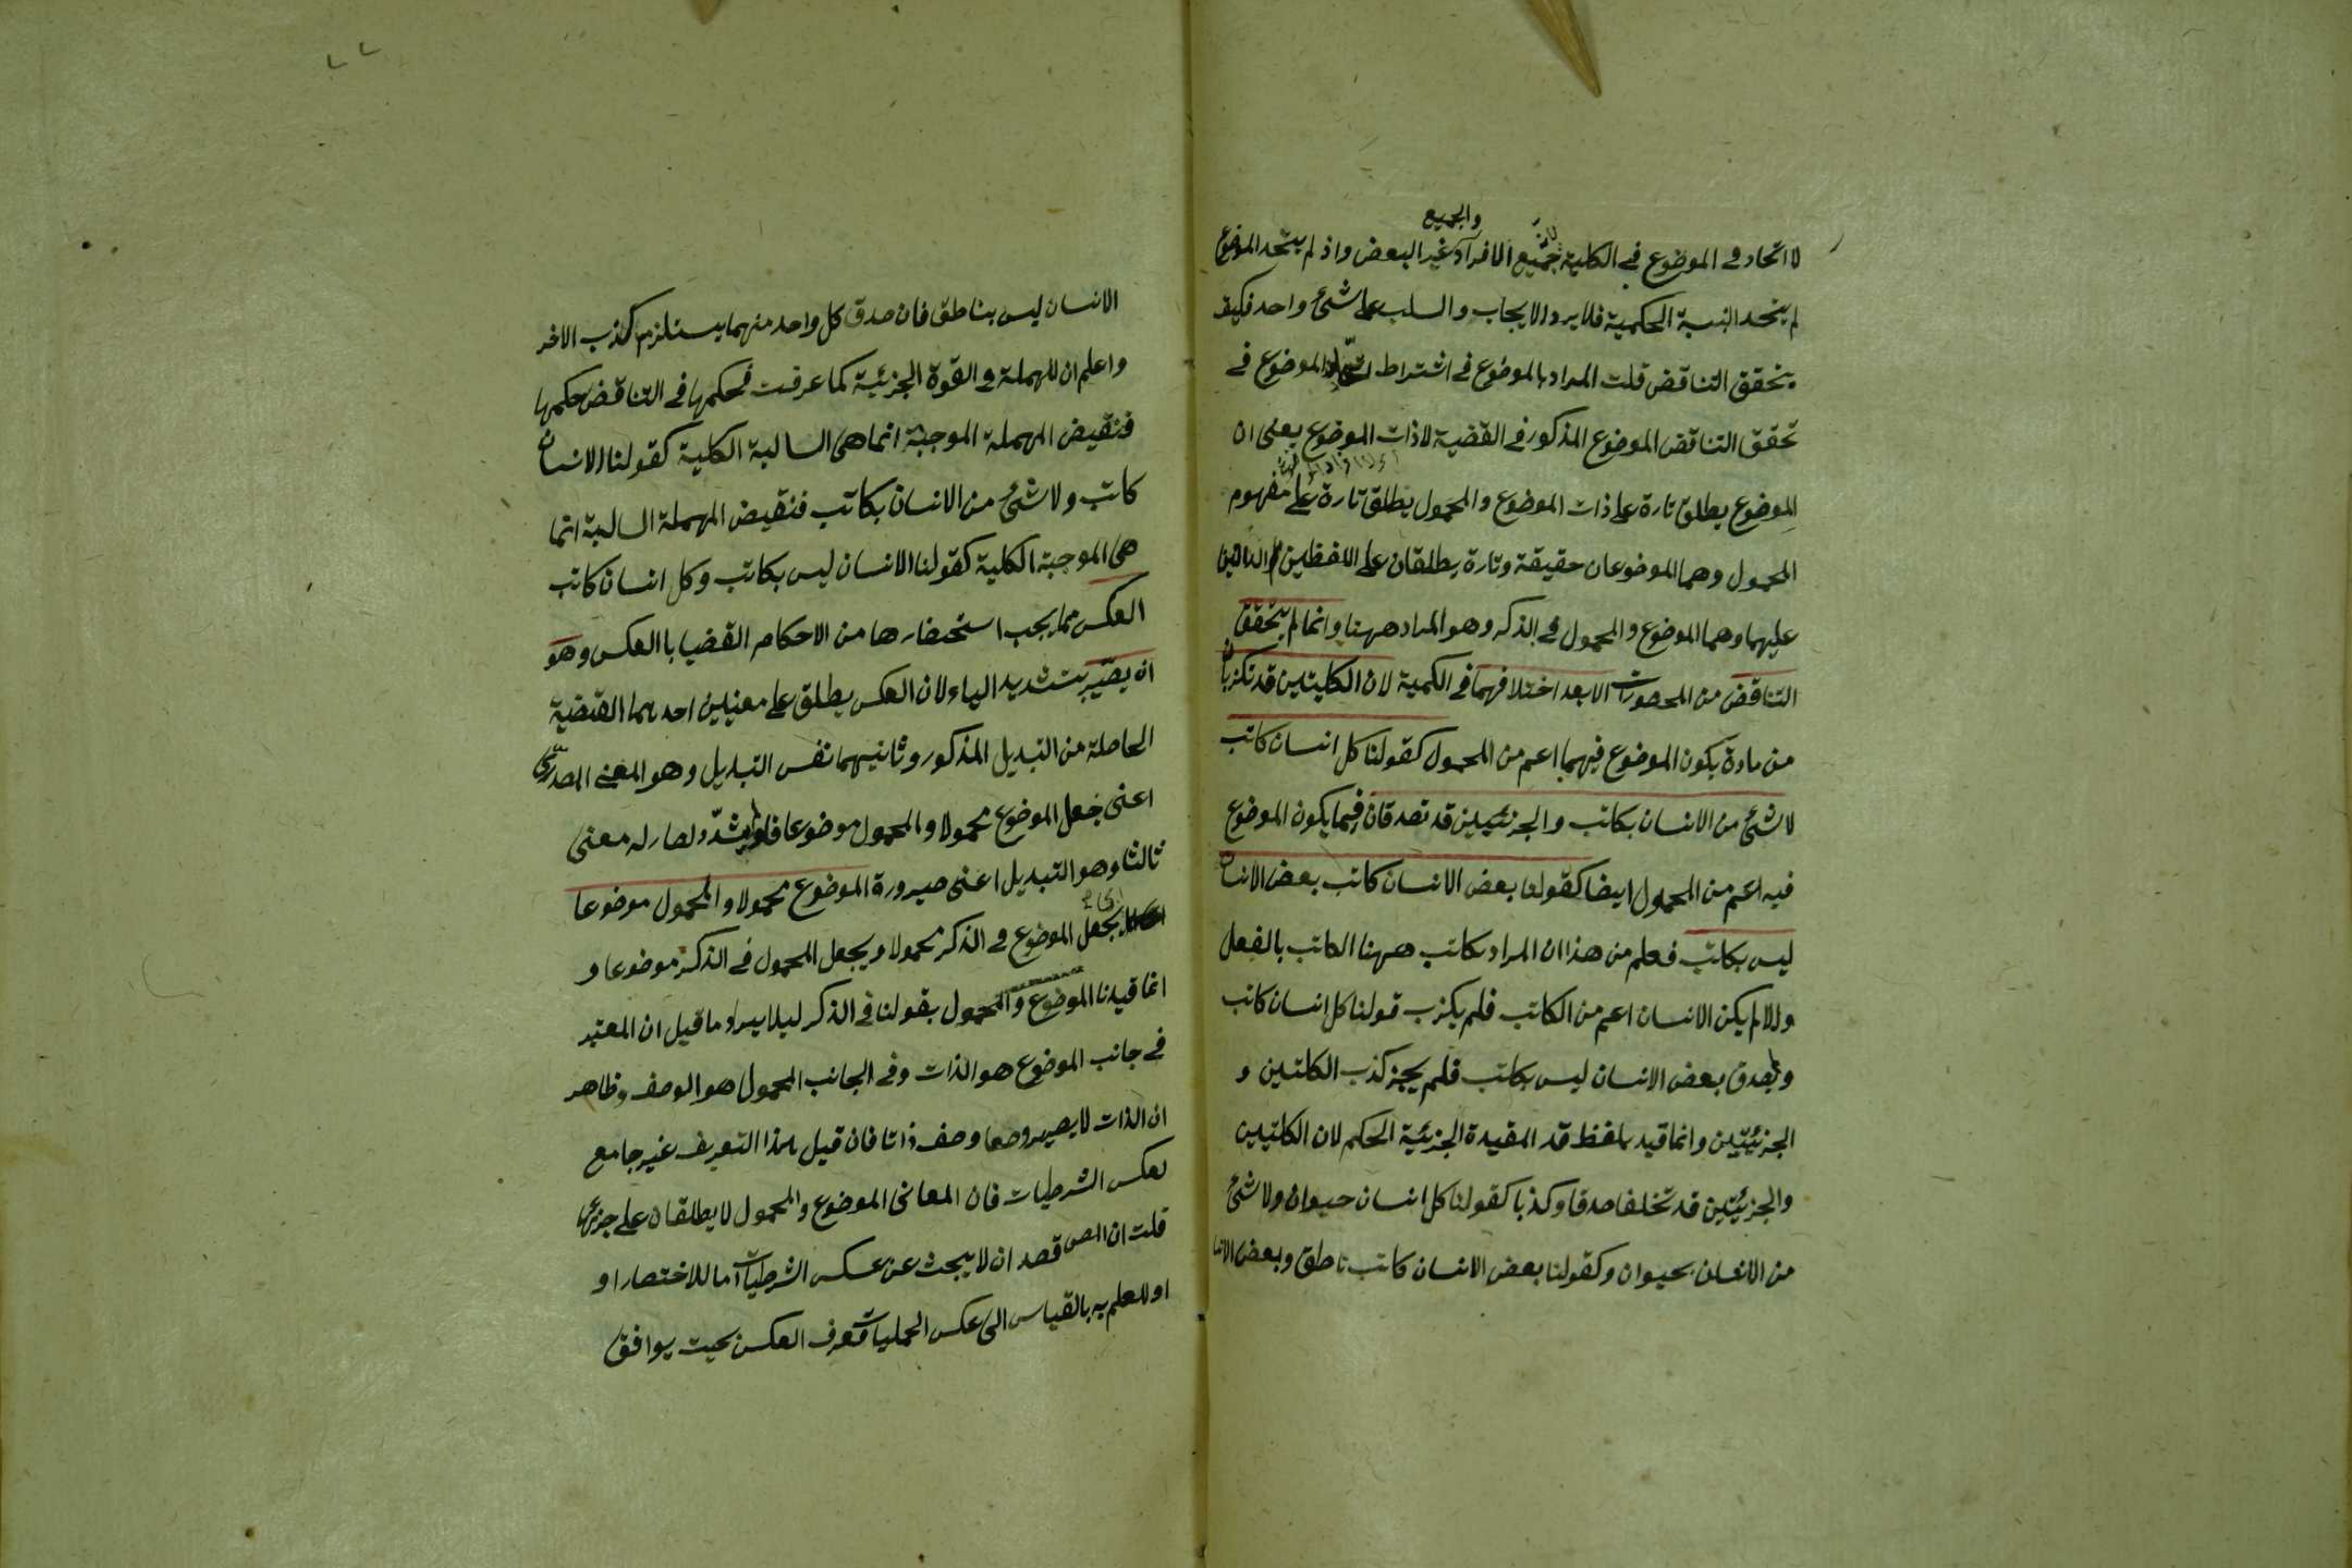 لا اتحاد فى الموضوع فى الكلية جميع الافراد غير البعض واذ لم يتحد الموضوع
والجميع
لم يتحد النسبة الحكمية فلا يرد الايجاب والسلب على شئ واحد فكيف
يتحقق التناقض قلت المراد بالموضوع فى اشتراط الموضوع فى
تحقق التناقض الموضوع المذكور فى القضية لاذات الموضوع يعنى ان
الموضوع يطلق تارة على ذات الموضوع والمحمول يطلق تارة على مفهوم
المحمول وهما الموضوعان حقيقة وتارة يطلقان على اللفظين الدالين
عليهما وهما الموضوع والمحمول فى الذكر وهو المراد ههنا وانما لم يتحقق
التناقض من المحصورات الا بعد اختلافهما فى الكمية لان الكليتين قد تكزبان
من مادة يكون الموضوع فيهما اعم من المحمول كقولنا كل انسان كاتب
لا شئ من الانسان بكاتب والجزئيين قد تصدقان فيما يكون الموضوع
فيه اعم من المحمول ايضا كقولنا بعض الانسان كاتب بعض الانسان
ليس بكاتب فعلم من هذا ان المراد بكاتب ههنا الكاتب بالفعل
والا لم يكن الانسان اعم من الكاتب فلم يكزب قولنا كل انسان كاتب
ويصدق بعض الانسان ليس بكاتب فلم يجز كذب الكلتين و
الجزئيتين وانما قيد بلفظ قد المقيدة الجزئية الحكم لان الكلتيين
والجزئيتين قد تخلفا صدقا وكذبا كقولنا كل انسان حيوان ولا شئ
من الانسان بحيوان وكقولنا بعض الانسان كاتب ناطق وبعض
الانسان ليس بناطق فان صدق كل واحد منهما يستلزم كذب الاخر
واعلم ان المهملة فى القوة الجزئية كما عرفت فحكمها فى التناقض حكمها
فنقيض المهملة الموجبة انما هى السالبة الكلية كقولنا الانسان
كاتب ولا شئ من الانسان بكاتب فنقيض المهملة السالبة انما
هى الموجبة الكلية كقولنا الانسان ليس بكاتب وكل انسان كاتب
العكس مما يجب استحضارها من الاحكام القضيا باالعكس وهو
ان يصير بتشديد الياء لان العكس يطلق على معنيين احدهما القضية
الحاصلة من التبديل المذكور وثانيهما نفس التبديل وهو المعنى المصدرى
اعنى جعل الموضوع محمولا والمحمول موضوعا فلو يشدد لصار له معنى
ثالثا وهو التبديل اعنى صيرورة الموضوع محمولا والمحمول موضوعا
بجعل الموضوع فى الذكر محمولا ويجعل المحمول فى الذكر موضوعا و
انما قيدنا الموضوع والمحمول بقولنا فى الذكر ليلا يبراد ما قيل ان المعتبر
فى جانب الموضوع هو الذات وفى الجانب المحمول هو الوصف وظاهر
ان الذات لا يصير وصفا وصف ذاتا فان قيل هذا التعريف غير جامع
لعكس الشرطيات فان المعانى الموضوع والمحمول لا يطلقان على جزئها
قلت ان المص قصد ان لا يبحث عن عكس الشرطيات اما للاختصار او
او للعلم به بالقياس الى عكس الحمليات فعرف العكس بحيث يوافق